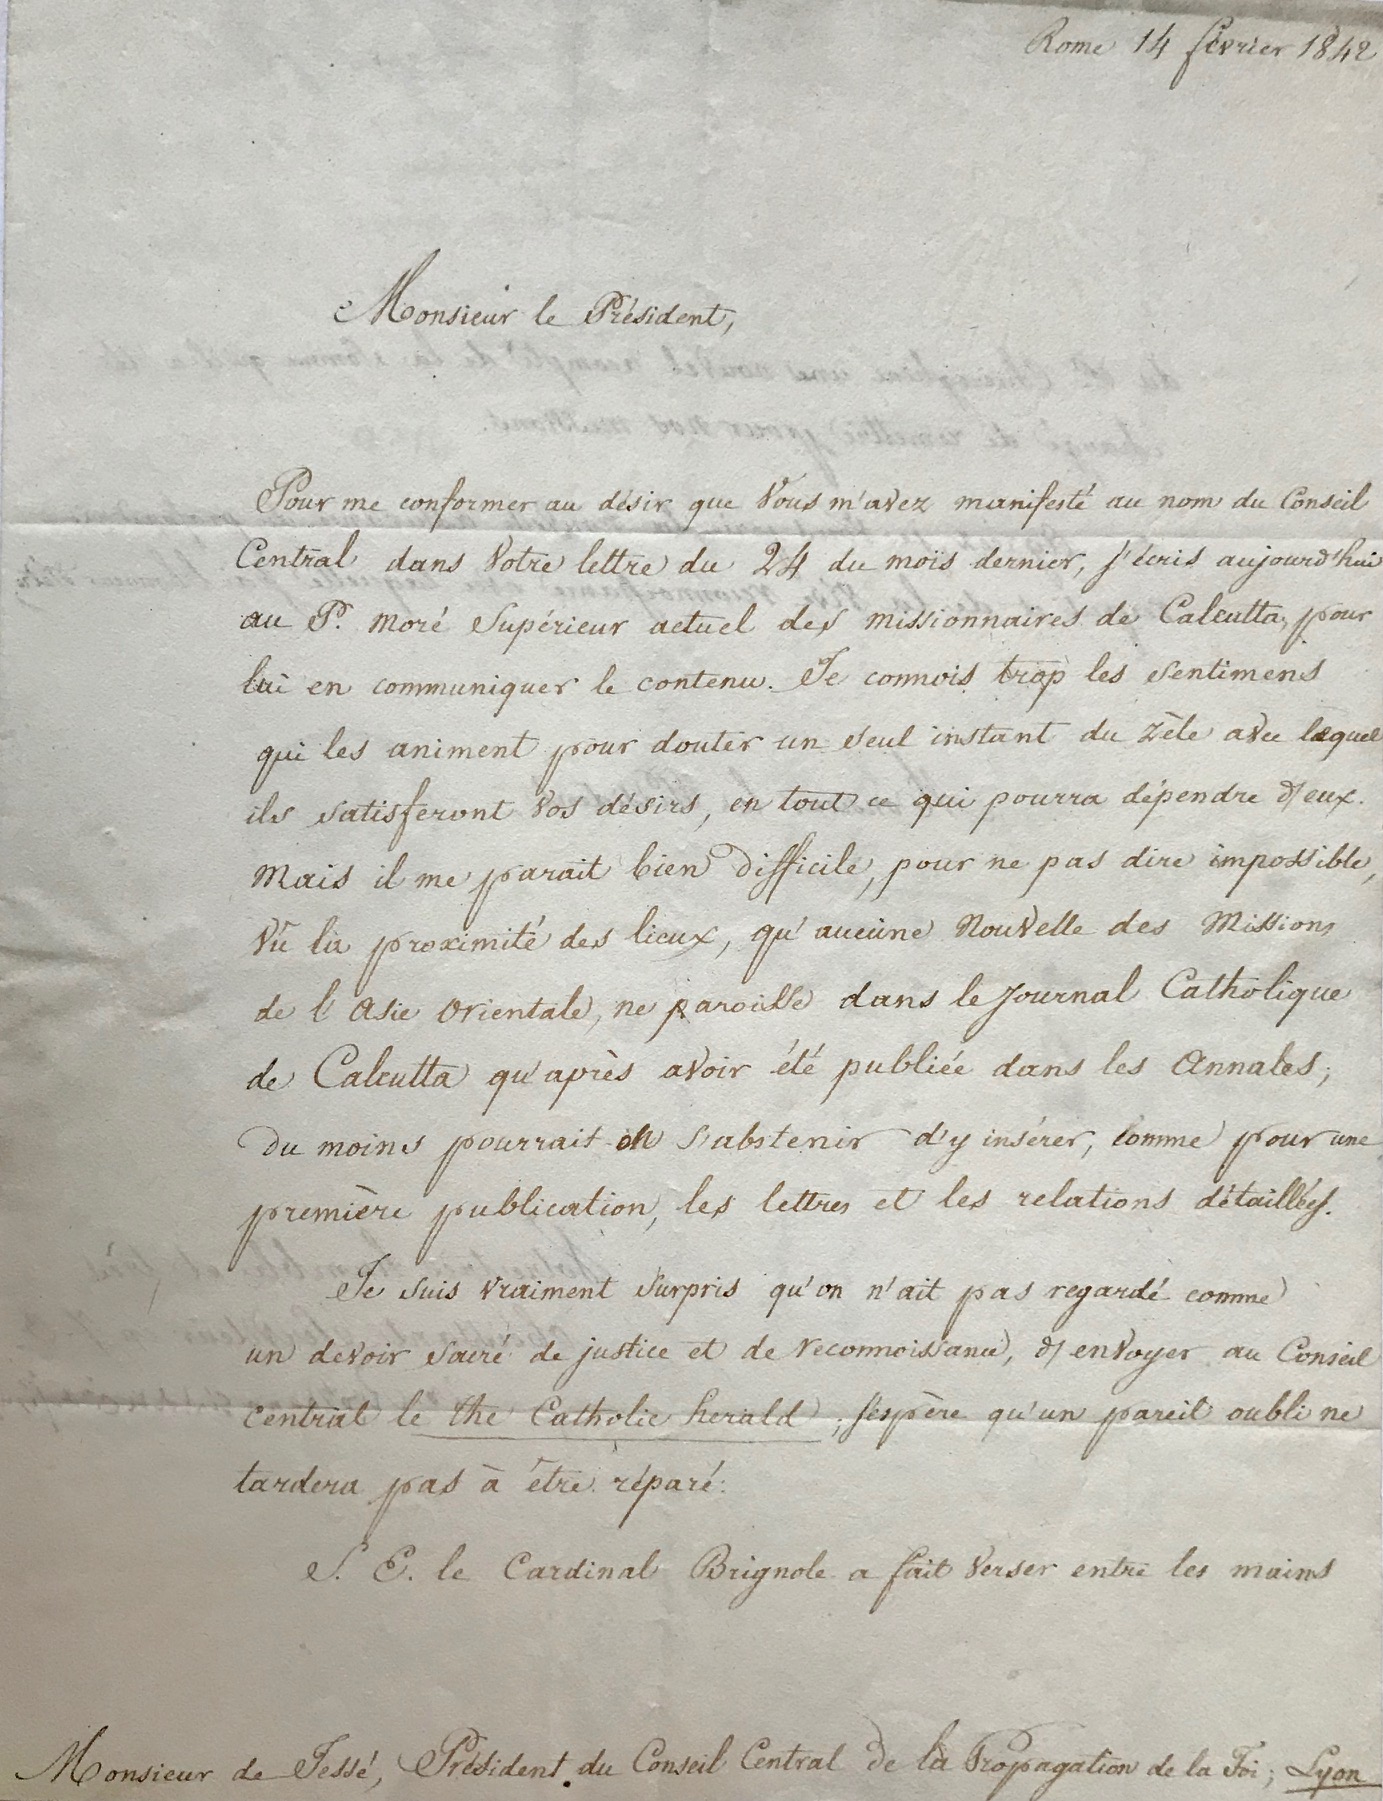 Rome 14 février 1842
Monsieur le Président,
Pour me conformer au désir que Vous m'avez manifesté au nom du Conseil
Central dans Votre lettre du 24 du mois dernier, j'écris aujourd'hui
au P. Moré Supérieur actuel des missionnaires de Calcutta, pour
lui en communiquer le contenu. Je connois trop les sentimens
qui les animent pour douter un seul instant du zèle avec lequel
ils satisferont Vos désirs, en tout ce qui pourra dépendre d'eux.
Mais il me parait bien difficile, pour ne pas dire impossible,
Vû la proximité des lieux, qu'aucune Nouvelle des Missions
de l'Asie Orientale, ne paroisse dans le Journal Catholique
de Calcutta qu'après avoir été publiée dans les Annales;
Du moins pourrait on s'abstenir d'y insérer, comme pour une
première publication, les lettres et les relations détaillées.
Je suis vraiment surpris qu'on n'ait pas regardé comme
un devoir sacré de justice et de reconnoissance, d'envoyer au Conseil
central le the Catholic herald; j'espère qu'un pareil oubli ne
tardera pas à être réparé.
S. E. le Cardinal Brignole a fait Verser entre les mains
Monsieur de Jessé, Président du Conseil Central de la Propagation de la Foi; Lyon